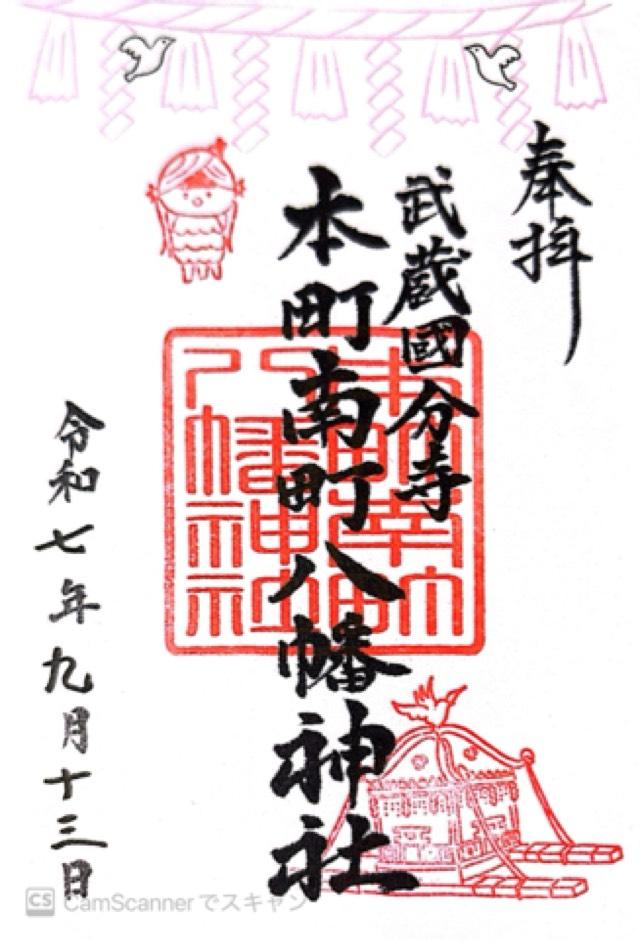 奉拝
武蔵國分寺
本町南町八幡神社
本町南町八幡神社
令和七年九月十三日
CS CamScannerでスキャン